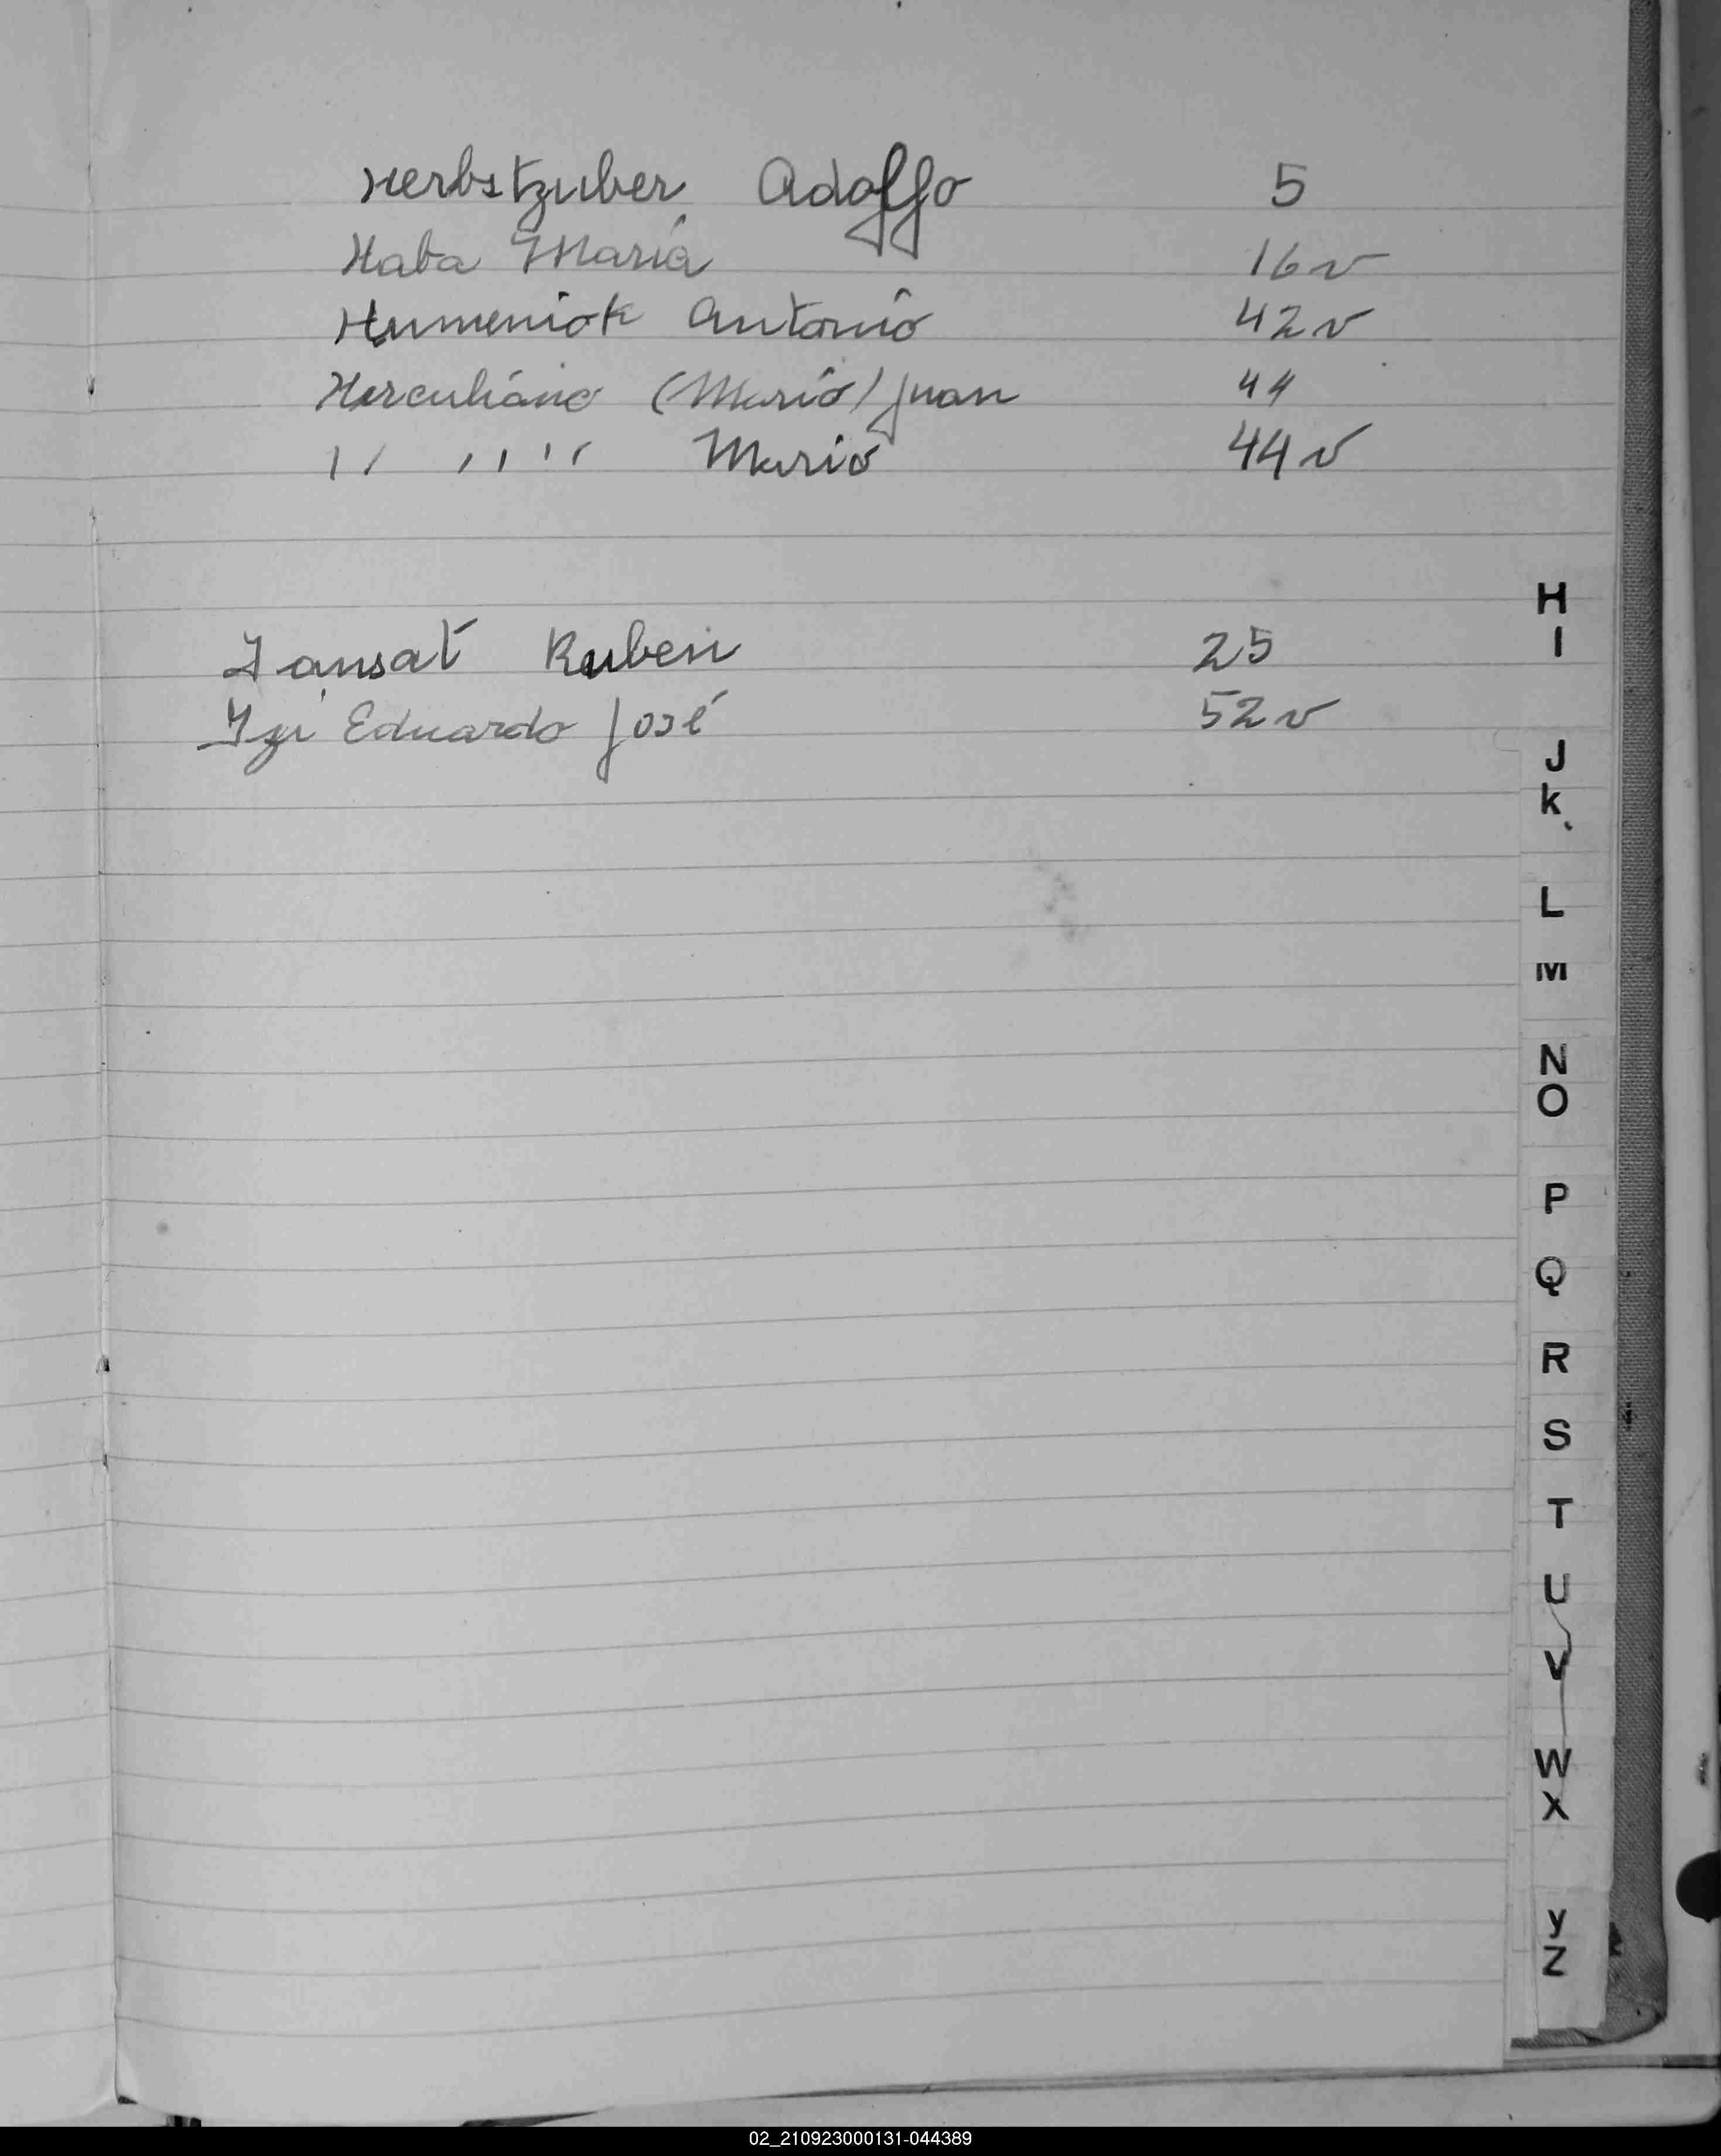 Herbstzuber Adolfo 5
Haba Maria 16v
Humeniok Antonio 42v
Herculiano (Mario) Juan 44
'' '' '' Mario 44v
Iansat Ruben 25
Izi Eduardo José 52v
H
I
J
k
L
M
N
O
P
Q
R
S
T
U
V
W
X
y
Z
02_210923000131-044389